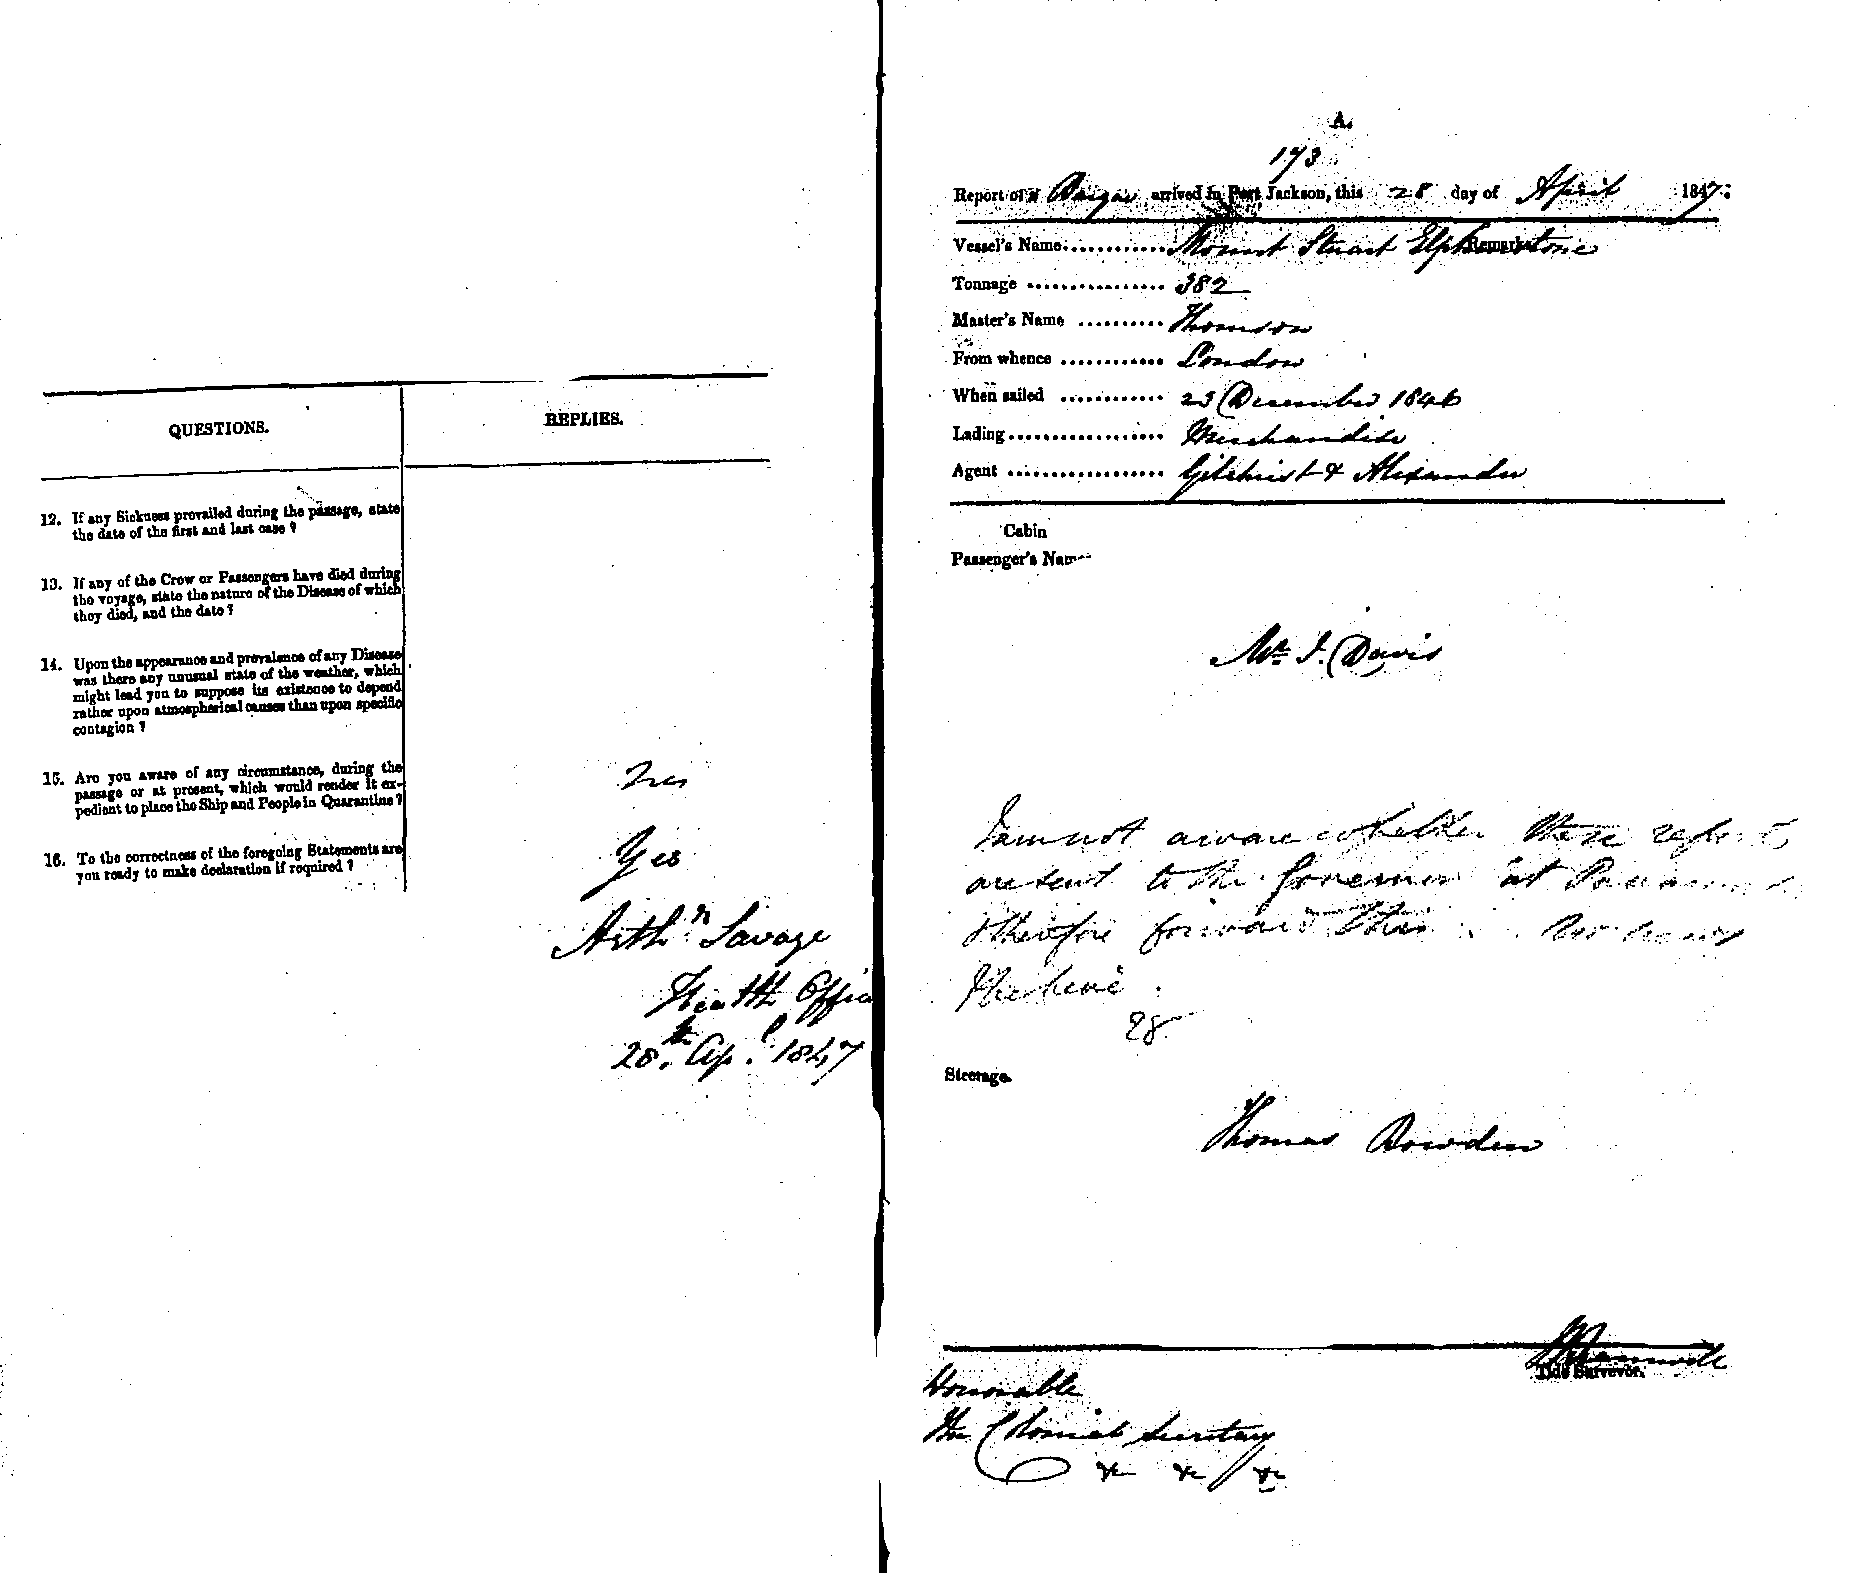 QUESTIONS.
REPLIES.
12. If any Sickness prevailed during the passage, state
the date of the first and last case ?
13. If any of the Crew or Passengers have died during
the voyage, state the nature of the Disease of which
they died, and the date ?
14. Upon the appearance and prevalence of any Disease
was there any unusual state of the weather, which
might lead you to suppose its existence to depend
rather upon atmospherical causes than upon specific
contagion ?
15. Are you aware of any circumstance, during the
passage or at present, which would render it ex-
pedient to place the Ship and People in Quarantine ?
16. To the correctness of the foregoing Statements are
you ready to make declaration if required ?
Yes
Arthr Savage
Health Office
28th Apl 1847
A.
173
Report of a Barque arrived in Port Jackson, this 28 day of April 1847.
Vessel's Name Mount Stuart Elphinstone
Remarks
Tonnage 382
Master's Name Thomson
From whence London
When sailed 23 December 1846
Lading Merchandise
Agent Gilchrist & Alexander
Cabin
Passenger's Name
Mr. J. Davis
I am not aware whether these reports
are sent to the Governor at
therefore forward this
28
Steerage.
Thomas Bowden
Tide Surveyor.
Honorable
The Colonial Secretary
&c &c &c